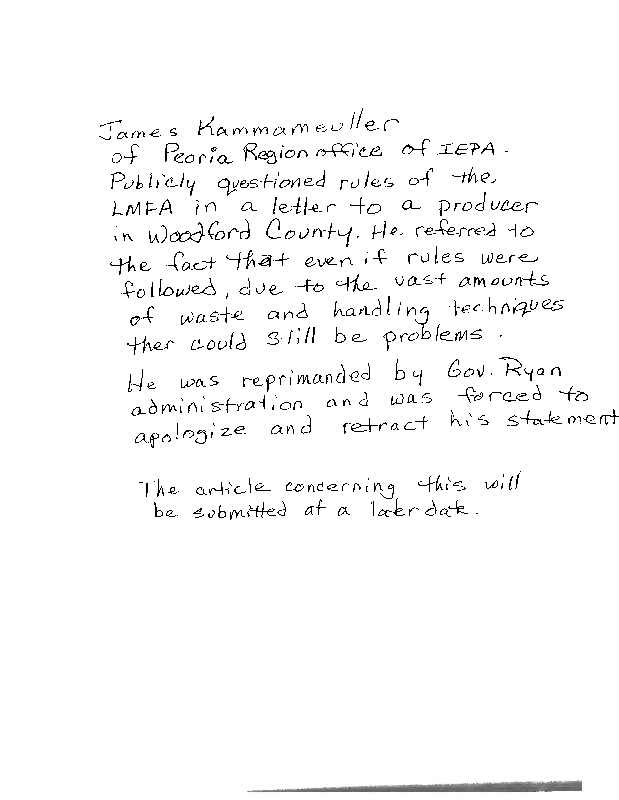 James Kammameuller
of Peoria Region office of IEPA.
Publicly questioned rules of the
LMFA in a letter to a producer
in Woodford County. He referred to
the fact that even if rules were
followed, due to the vast amounts
of waste and handling techniques
ther could still be problems.
He was reprimanded by Gov. Ryan
administration and was forced to
apologize and retract his statement
The article concerning this will
be submitted at a later date.